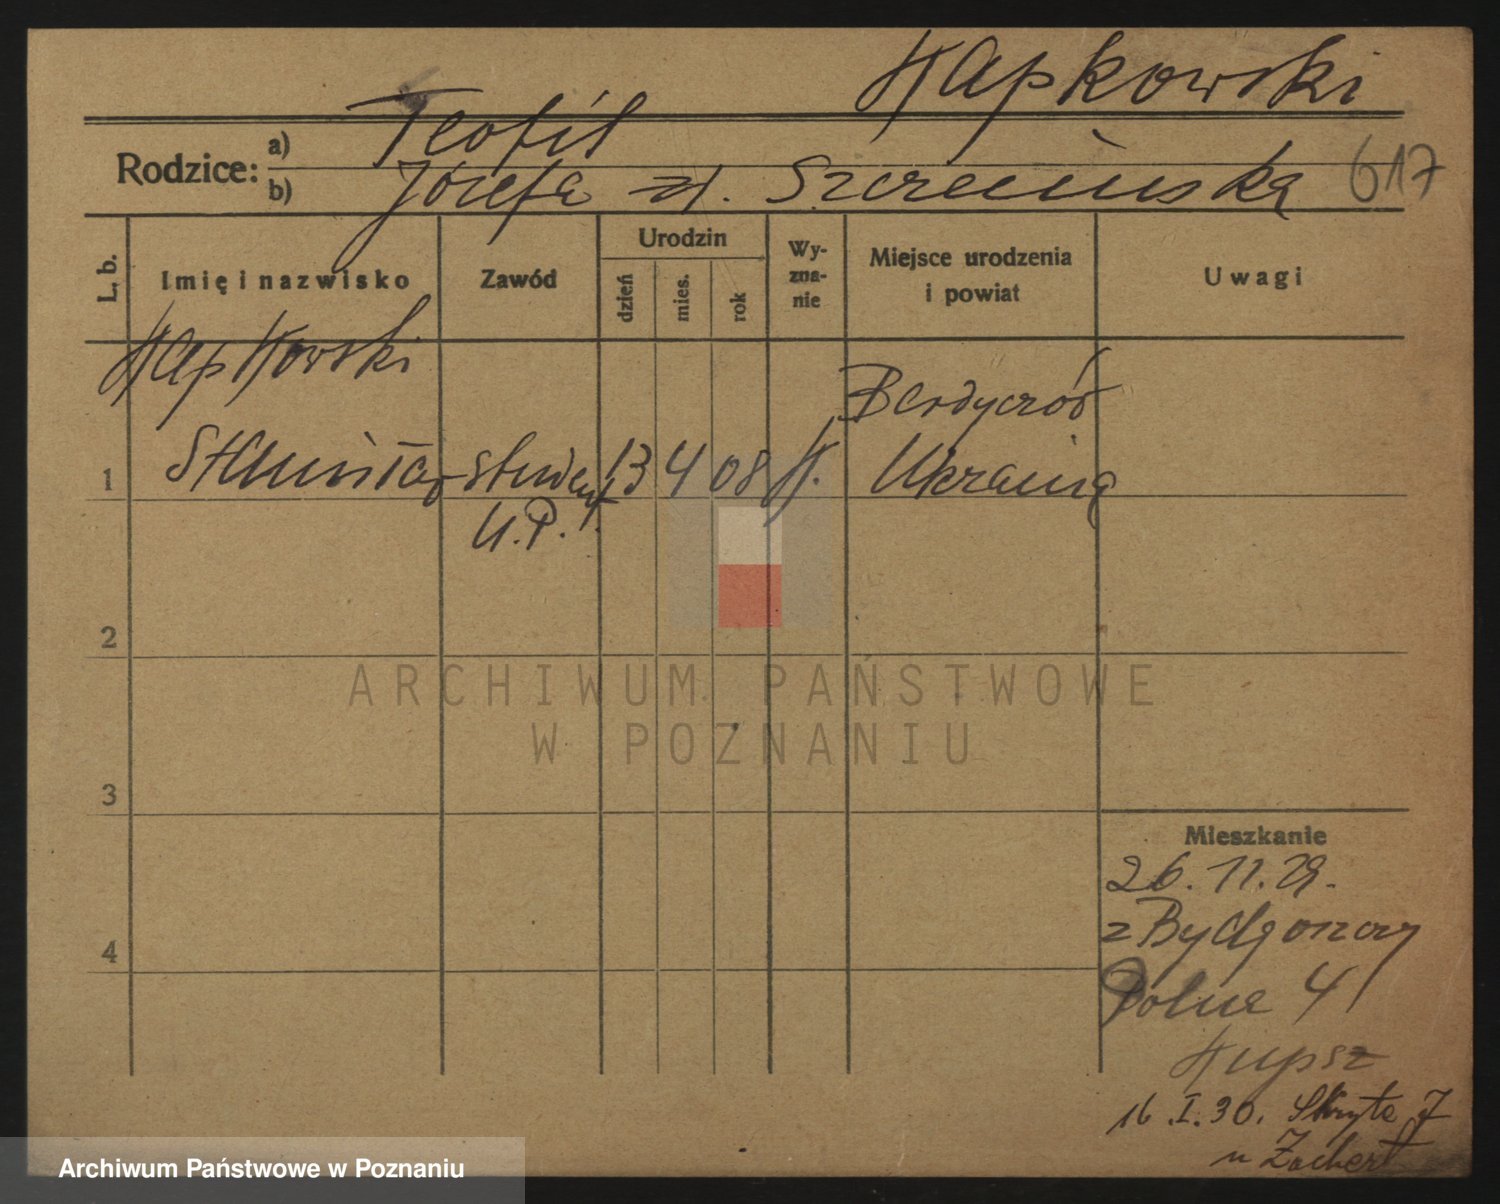 Kapkowski
Rodzice: a) Teofil
b) Józefa zd. Szczecińska 617
L. b.
Imię i nazwisko
Zawód
Urodzin
dzień
mies.
rok
Wy-
zna-
nie
Miejsce urodzenia
i powiat
Uwagi
Kapkowski Berdyczów
1 Stanisław student 13 4 08 k. Ukraina
U.P.
2
3
4
Mieszkanie
26.11.29.
z Bydgoszczy
Polna 41
Kupsz
16.I.30. Skryta 7
u Zachert
ARCHIWUM PAŃSTWOWE
W POZNANIU
Archiwum Państwowe w Poznaniu